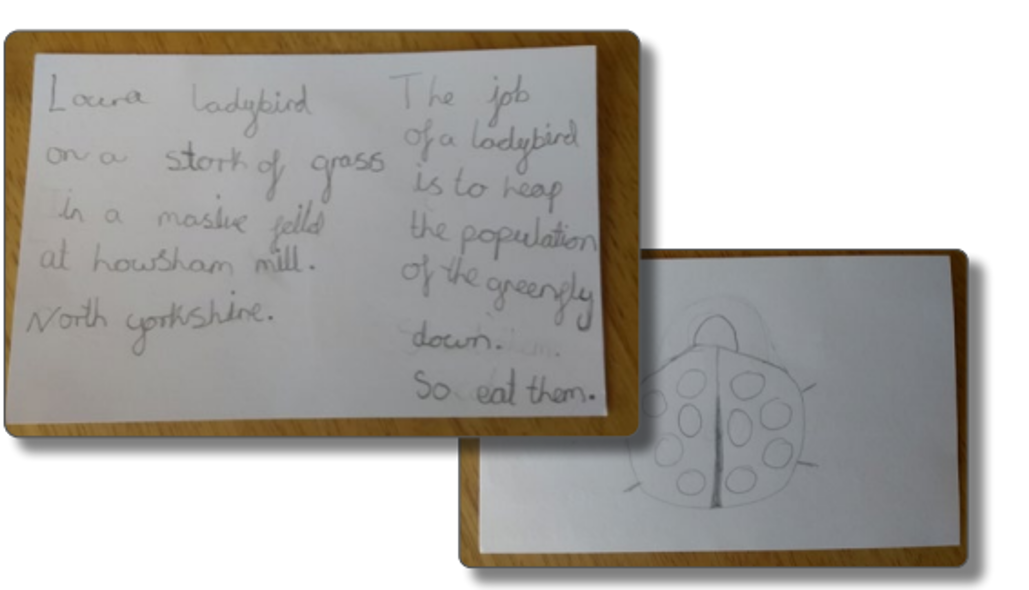 Laura ladybird
on a stork of grass
in a masive feild
at howsham mill.
North yorkshire.
The job
of a ladybird
is to heap
the population
of the greengly
down.
So eat them.